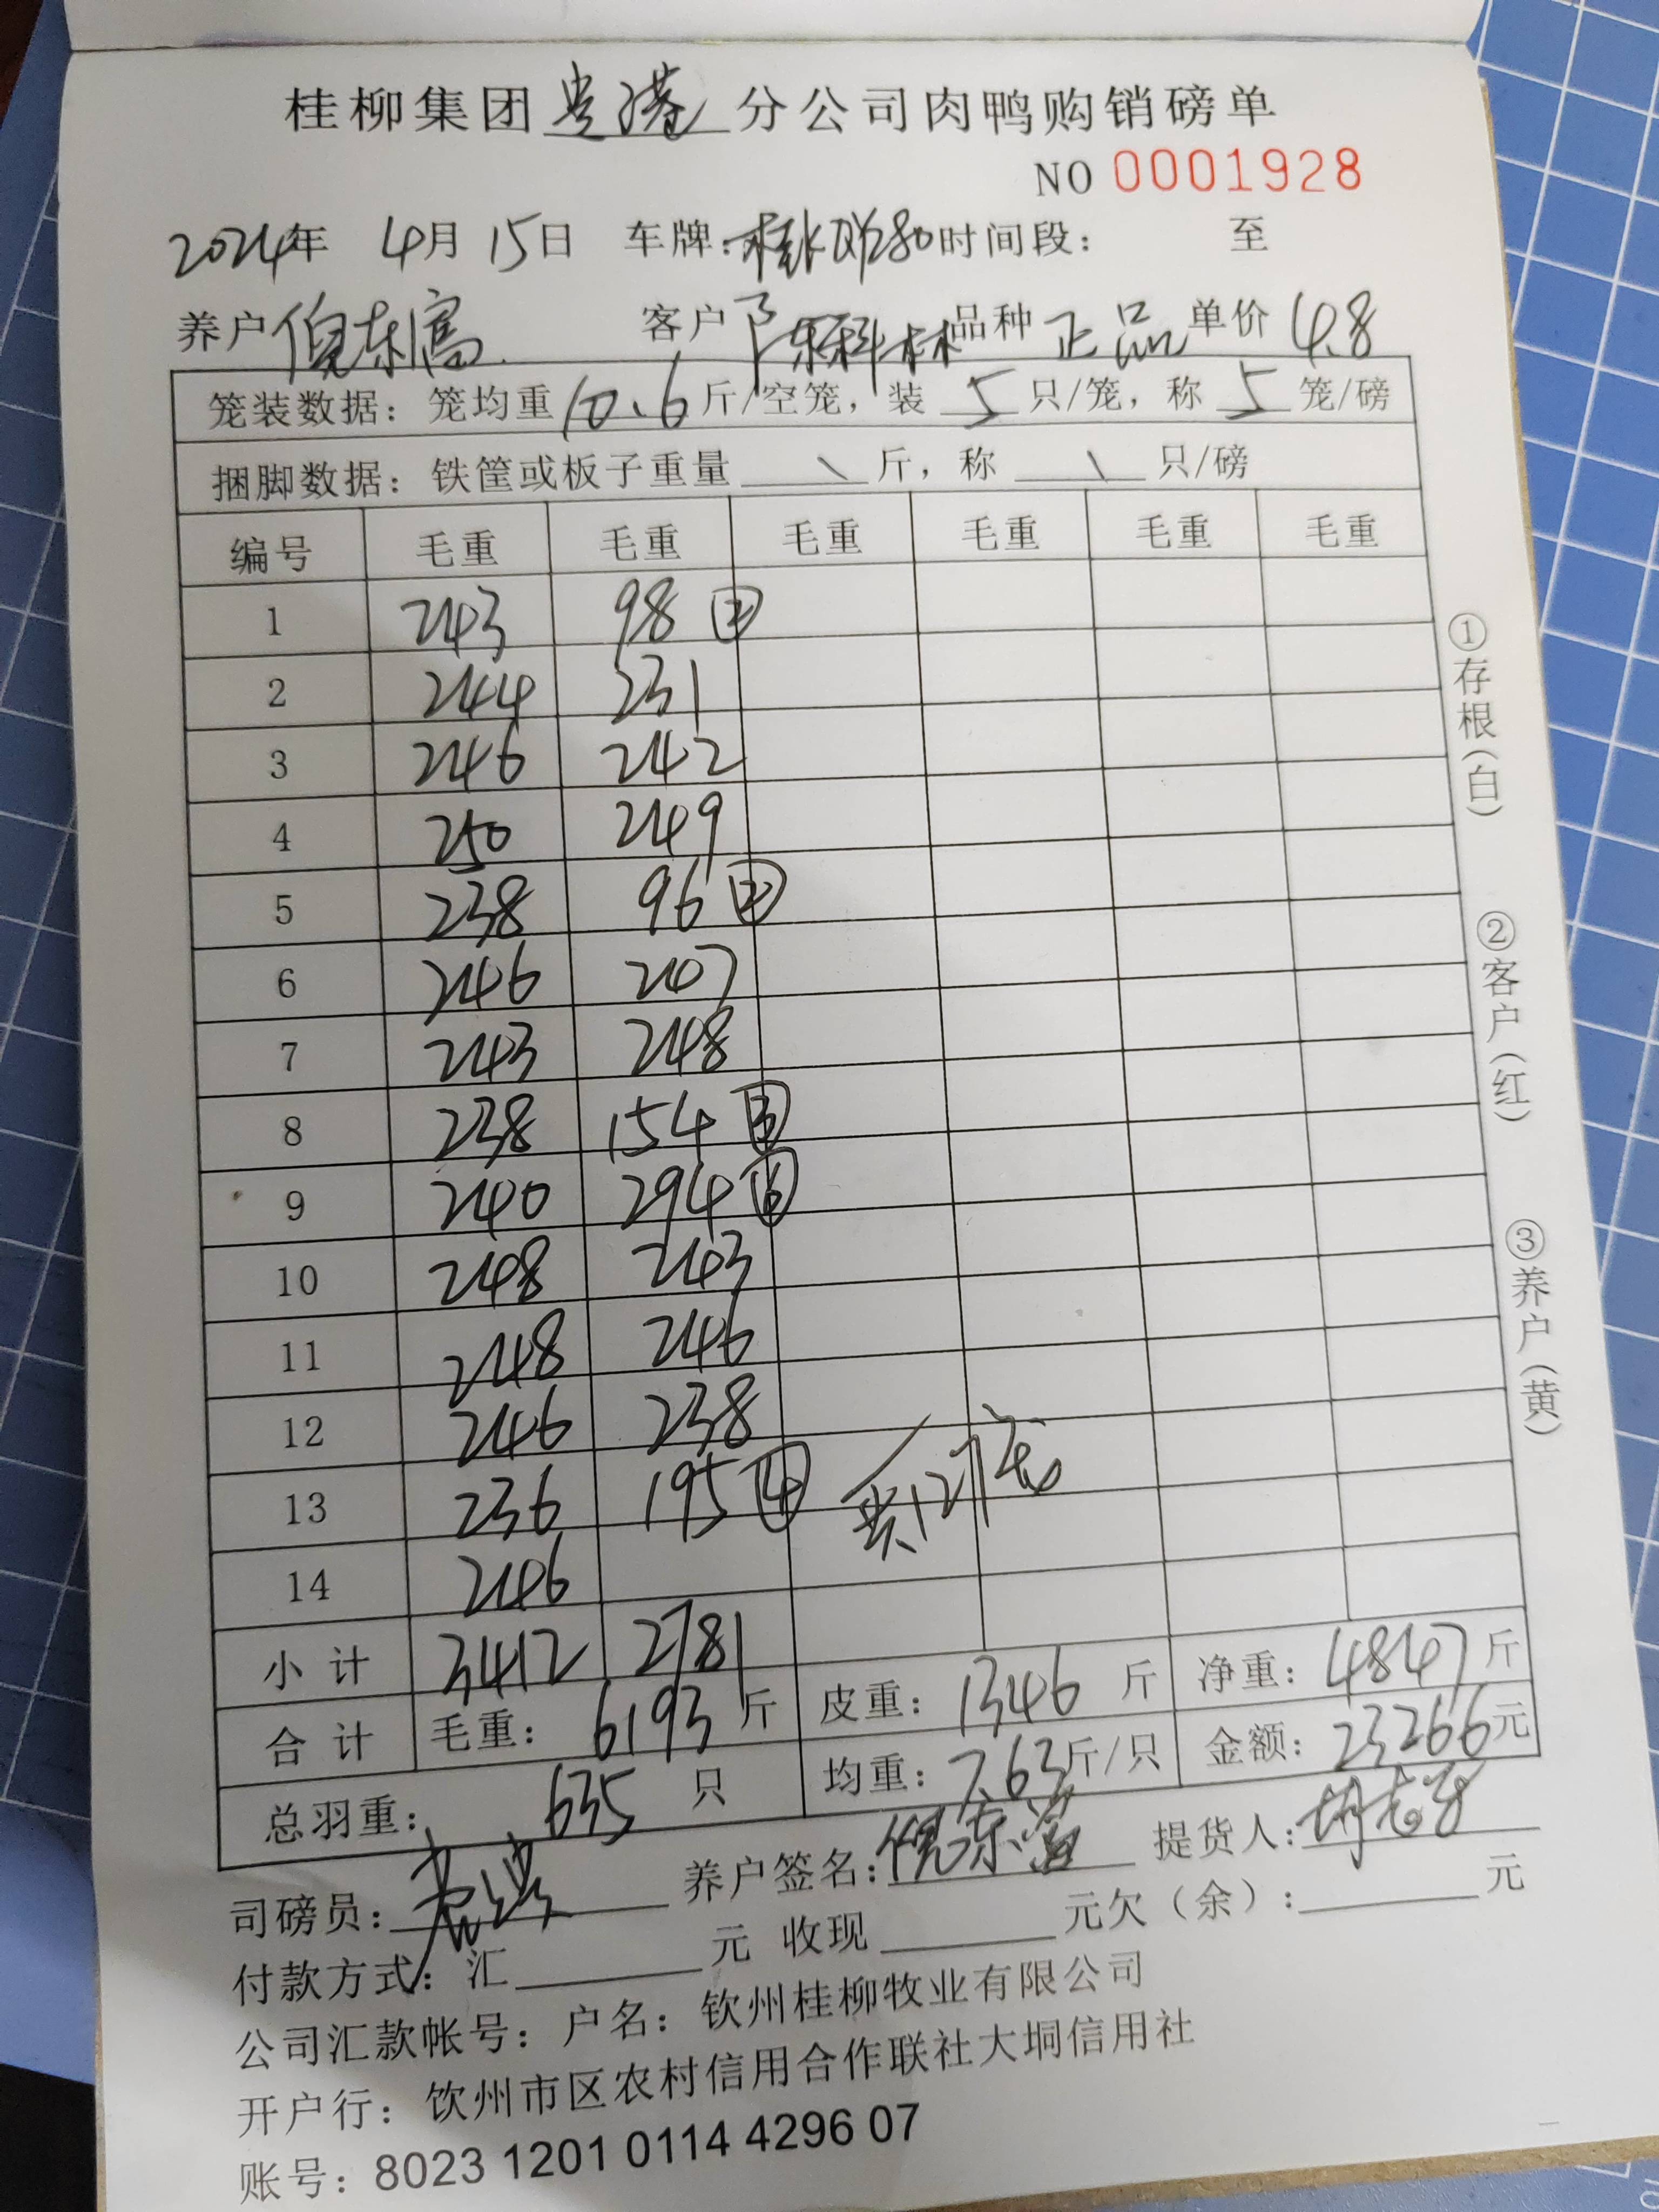 桂柳集团贵港分公司肉鸭购销磅单
NO 0001928
2024年 4月 15日 车牌: 时间段: 至
养户倪东富 客户陈科林品种正品单价4.8
笼装数据: 笼均重10.6斤/空笼, 装5只/笼, 称5笼/磅
捆脚数据: 铁筐或板子重量 \ 斤, 称 \ 只/磅
编号 毛重 毛重 毛重 毛重 毛重 毛重
1 243 98 ②
2 244 231
3 246 242
4 250 249
5 238 96 ②
6 246 247
7 243 248
8 238 154 ③
9 240 294 ⑥
10 248 243
11 248 246
12 246 238
13 236 195 ④ 共127笼
14 246
小计 3412 2781
合计 毛重: 6193斤 皮重: 1346斤 净重: 4847斤
总羽重: 635只 均重: 7.63斤/只 金额: 23266元
司磅员: 养户签名: 倪东富 提货人:
付款方式: 汇 元 收现 元欠(余): 元
公司汇款帐号: 户名: 钦州桂柳牧业有限公司
开户行: 钦州市区农村信用合作联社大垌信用社
账号: 8023 1201 0114 4296 07
①存根(白)
②客户(红)
③养户(黄)